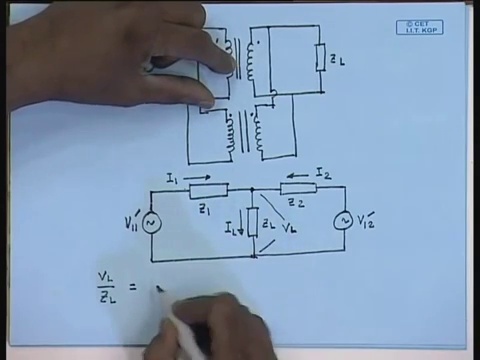 © CET
I.I.T. KGP
ZL
I1
I2
Z1
Z2
V11′
IL
ZL
VL
V12′
VL
ZL
=